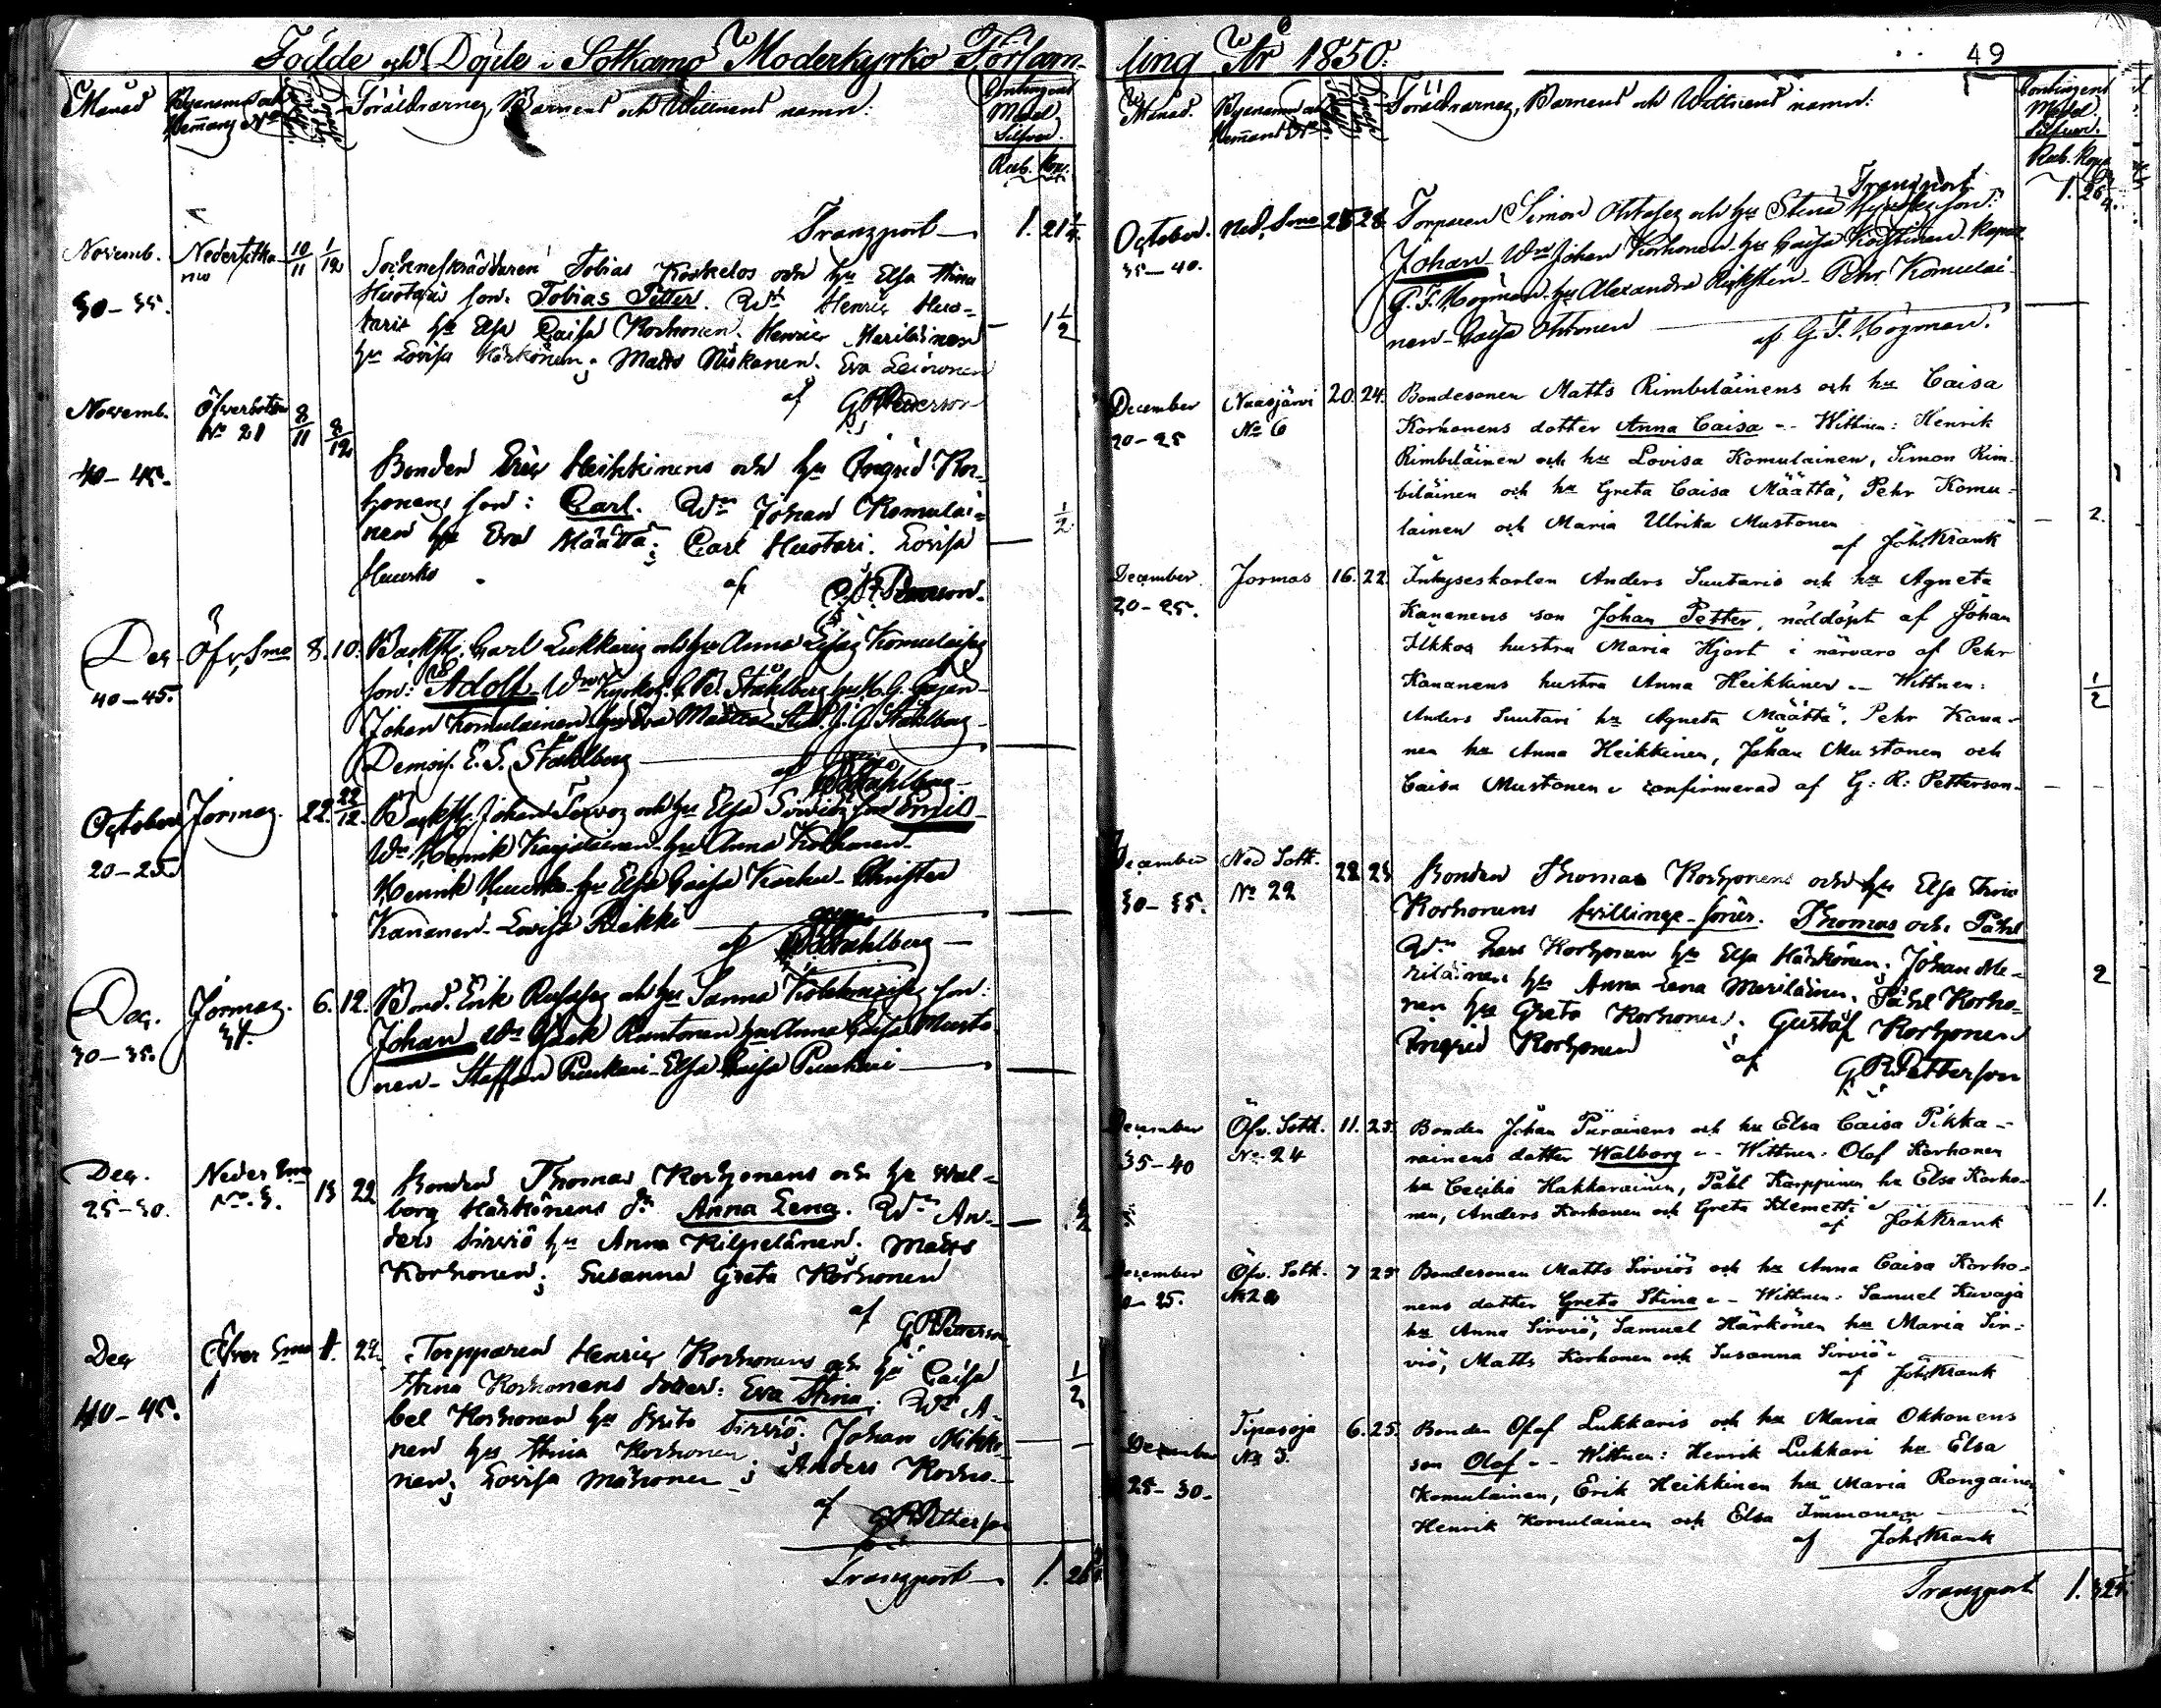 Födde och Döpte i Sotkamo Moderkyrko Församling År 1850.
49
Månad
Byanamn och Hemmans No
Föräldrarnes, Barnens och Wittnens namn:
Contingent Med. Silfver.
Rub. Kop.
Transport 1. 21 1/4
Novemb. 30-35.
10/11 1/12
Sockneskräddaren Tobias Koskelos och hu Elsa Stina
Huotaris son. Tobias Petter. Wn Henric Huo-
taris hu Elsa Caisa Korhonen. Henric Meriläinen
hu Lovisa Härkönen; Matts Niskanen. Eva Leinonen
af G R Petterson
1/2
Novemb. 40-45.
No 21
8/11 8/12
Bonden Eric Heikkinens och hu Ingrid Kor-
honens son: Carl. Wn Johan Komulai-
nen hu Eva Määttä; Carl Huotari. Lovisa
Huusko
af G. R. Petterson.
1/2
Dec. 40-45.
Öfv, Smo 8. 10.
Carl Lukkaris och hu Anna Komulaises
son: Adolf. Wn Stålberg hu
Johan Komulainen hu Eva Määttä Stålberg
Demois. E. S. Ståhlberg
af Ståhlberg
October 20-25.
Jormas. 22. 22/12.
Johan och hu Elsa Sirviös son
Wn Henrik Karjalainen hu Anna Korhonen
Henrik Huusko hu Elsa Caisa Korhu- Christer
Kananen- Lovisa Rikki
af Ståhlberg
Dec. 30-35.
Jormas 6. 12.
Bond. Erik och hu Sanna son:
Johan Wn hu Anna Caisa Musto
nen- Staffan Puukari- Elsa Caisa Puukari
Dec. 25-30.
Neder Smo No. 3. 13 22
Bonden Thomas Korhonens och hu Wal-
borg Härkönens dr Anna Lena. Wn An-
ders Sirviö hu Anna Kilpeläinen. Matts
Korhonen; Susanna Greta Korhonen
af G R Petterson
1/2
Dec 40-45.
Öfver Smo 22.
Torpparen Henric Korhonens och hu Caisa
Stina Korhonens dotter: Eva Stina. Wn A-
bel Korhonen hu Brita Sirviö. Johan Mikko-
nen hu Stina Korhonen; Anders Korho-
nen; Lovisa Mähönen
af G R Petterson
1/2
Transport 1. 26
Månad.
Byanamn och Hemmans No
Föräldrarnes, Barnens och Wittnens namn:
Contingent Med. Silfver.
Rub. Kop.
Transport 1. 26
October. 35-40.
Ned, Smo 28
Torparen Simon och hu Stina son:
Johan- Wn Johan Korhonen- hu Caisa
G. F. Högman- hu Alexandra Pehr Komulai-
nen- Caisa Ohtonen
af G. F. Högman.
December 20-25
Naasjärvi No 6
20. 24.
Bondesonen Matts Rimbiläinens och hu Caisa
Korhonens dotter Anna Caisa -- Wittnen: Henrik
Rimbiläinen och hu Lovisa Komulainen, Simon Rim-
biläinen och hu Greta Caisa Määttä, Pehr Komu-
lainen och Maria Ulrika Mustonen
af Joh. Krank
2.
December 20-25.
Jormas 16. 22.
Inhyseskarlen Anders Suutaris och hu Agneta
Kananens son Johan Petter, nöddöpt af Johan
Ilkkos hustru Maria Hjort i närvaro af Pehr
Kananens hustru Anna Heikkinen -- Wittnen:
Anders Suutari hu Agneta Määttä, Pehr Kana-
nen hu Anna Heikkinen, Johan Mustonen och
Caisa Mustonen confirmerad af G: R: Petterson-
1/2
December 30-35.
Ned Sotk. No 22
22 25
Bonden Thomas Korhonens och hu Elsa Stina
Korhonens tvillinge-söner. Thomas och Påhl
Wn Lars Korhonen hu Elsa Härkönen; Johan Me-
riläinen hu Anna Lena Meriläinen. Påhl Korho-
nen hu Greta Korhonen; Gustaf Korhonen
Ingrid Korhonen
af G R Petterson
2
December 35-40
Öfv. Sotk. No 24
11. 25.
Bonden Johan Piirainens och hu Elsa Caisa Pikka-
rainens dotter Walborg -- Wittnen: Olof Korhonen
hu Cecilia Hakkarainen, Påhl Karppinen hu Elsa Korho-
nen, Anders Korhonen och Greta Klemetti
af Joh. Krank
1.
December
Öfv. Sotk.
7 25
Bondesonen Matts Sirviös och hu Anna Caisa Korho-
nens dotter Greta Stina -- Wittnen: Samuel Kuvaja
hu Anna Sirviö, Samuel Härkönen hu Maria Sir-
viö, Matts Korhonen och Susanna Sirviö
af Joh. Krank
December 25-30-
Tipasoja No 3.
6. 25.
Bonden Olof Lukkaris och hu Maria Okkonens
son Olof -- Wittnen: Henrik Lukkari hu Elsa
Komulainen, Erik Heikkinen hu Maria Rongainen
Henrik Komulainen och Elsa Immonen
af Joh. Krank
Transport 1.